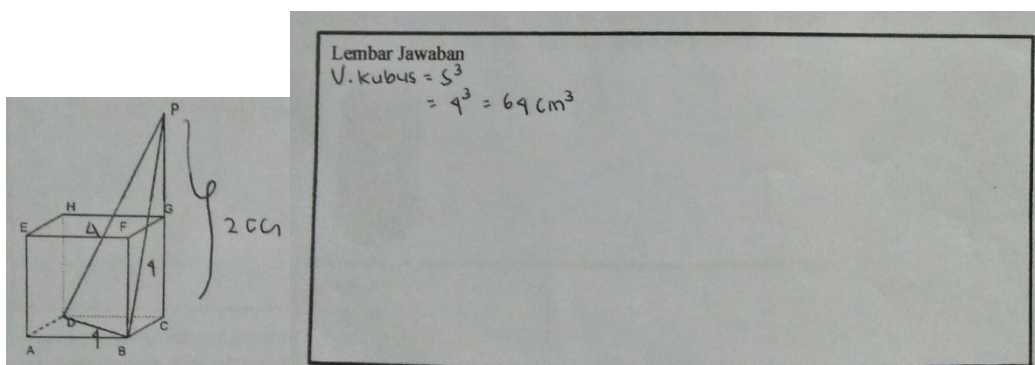 P
H
G
E
4
F
2 CG
4
D
C
4
A
B
Lembar Jawaban
V. Kubus = S³
= 4³ = 64 cm³